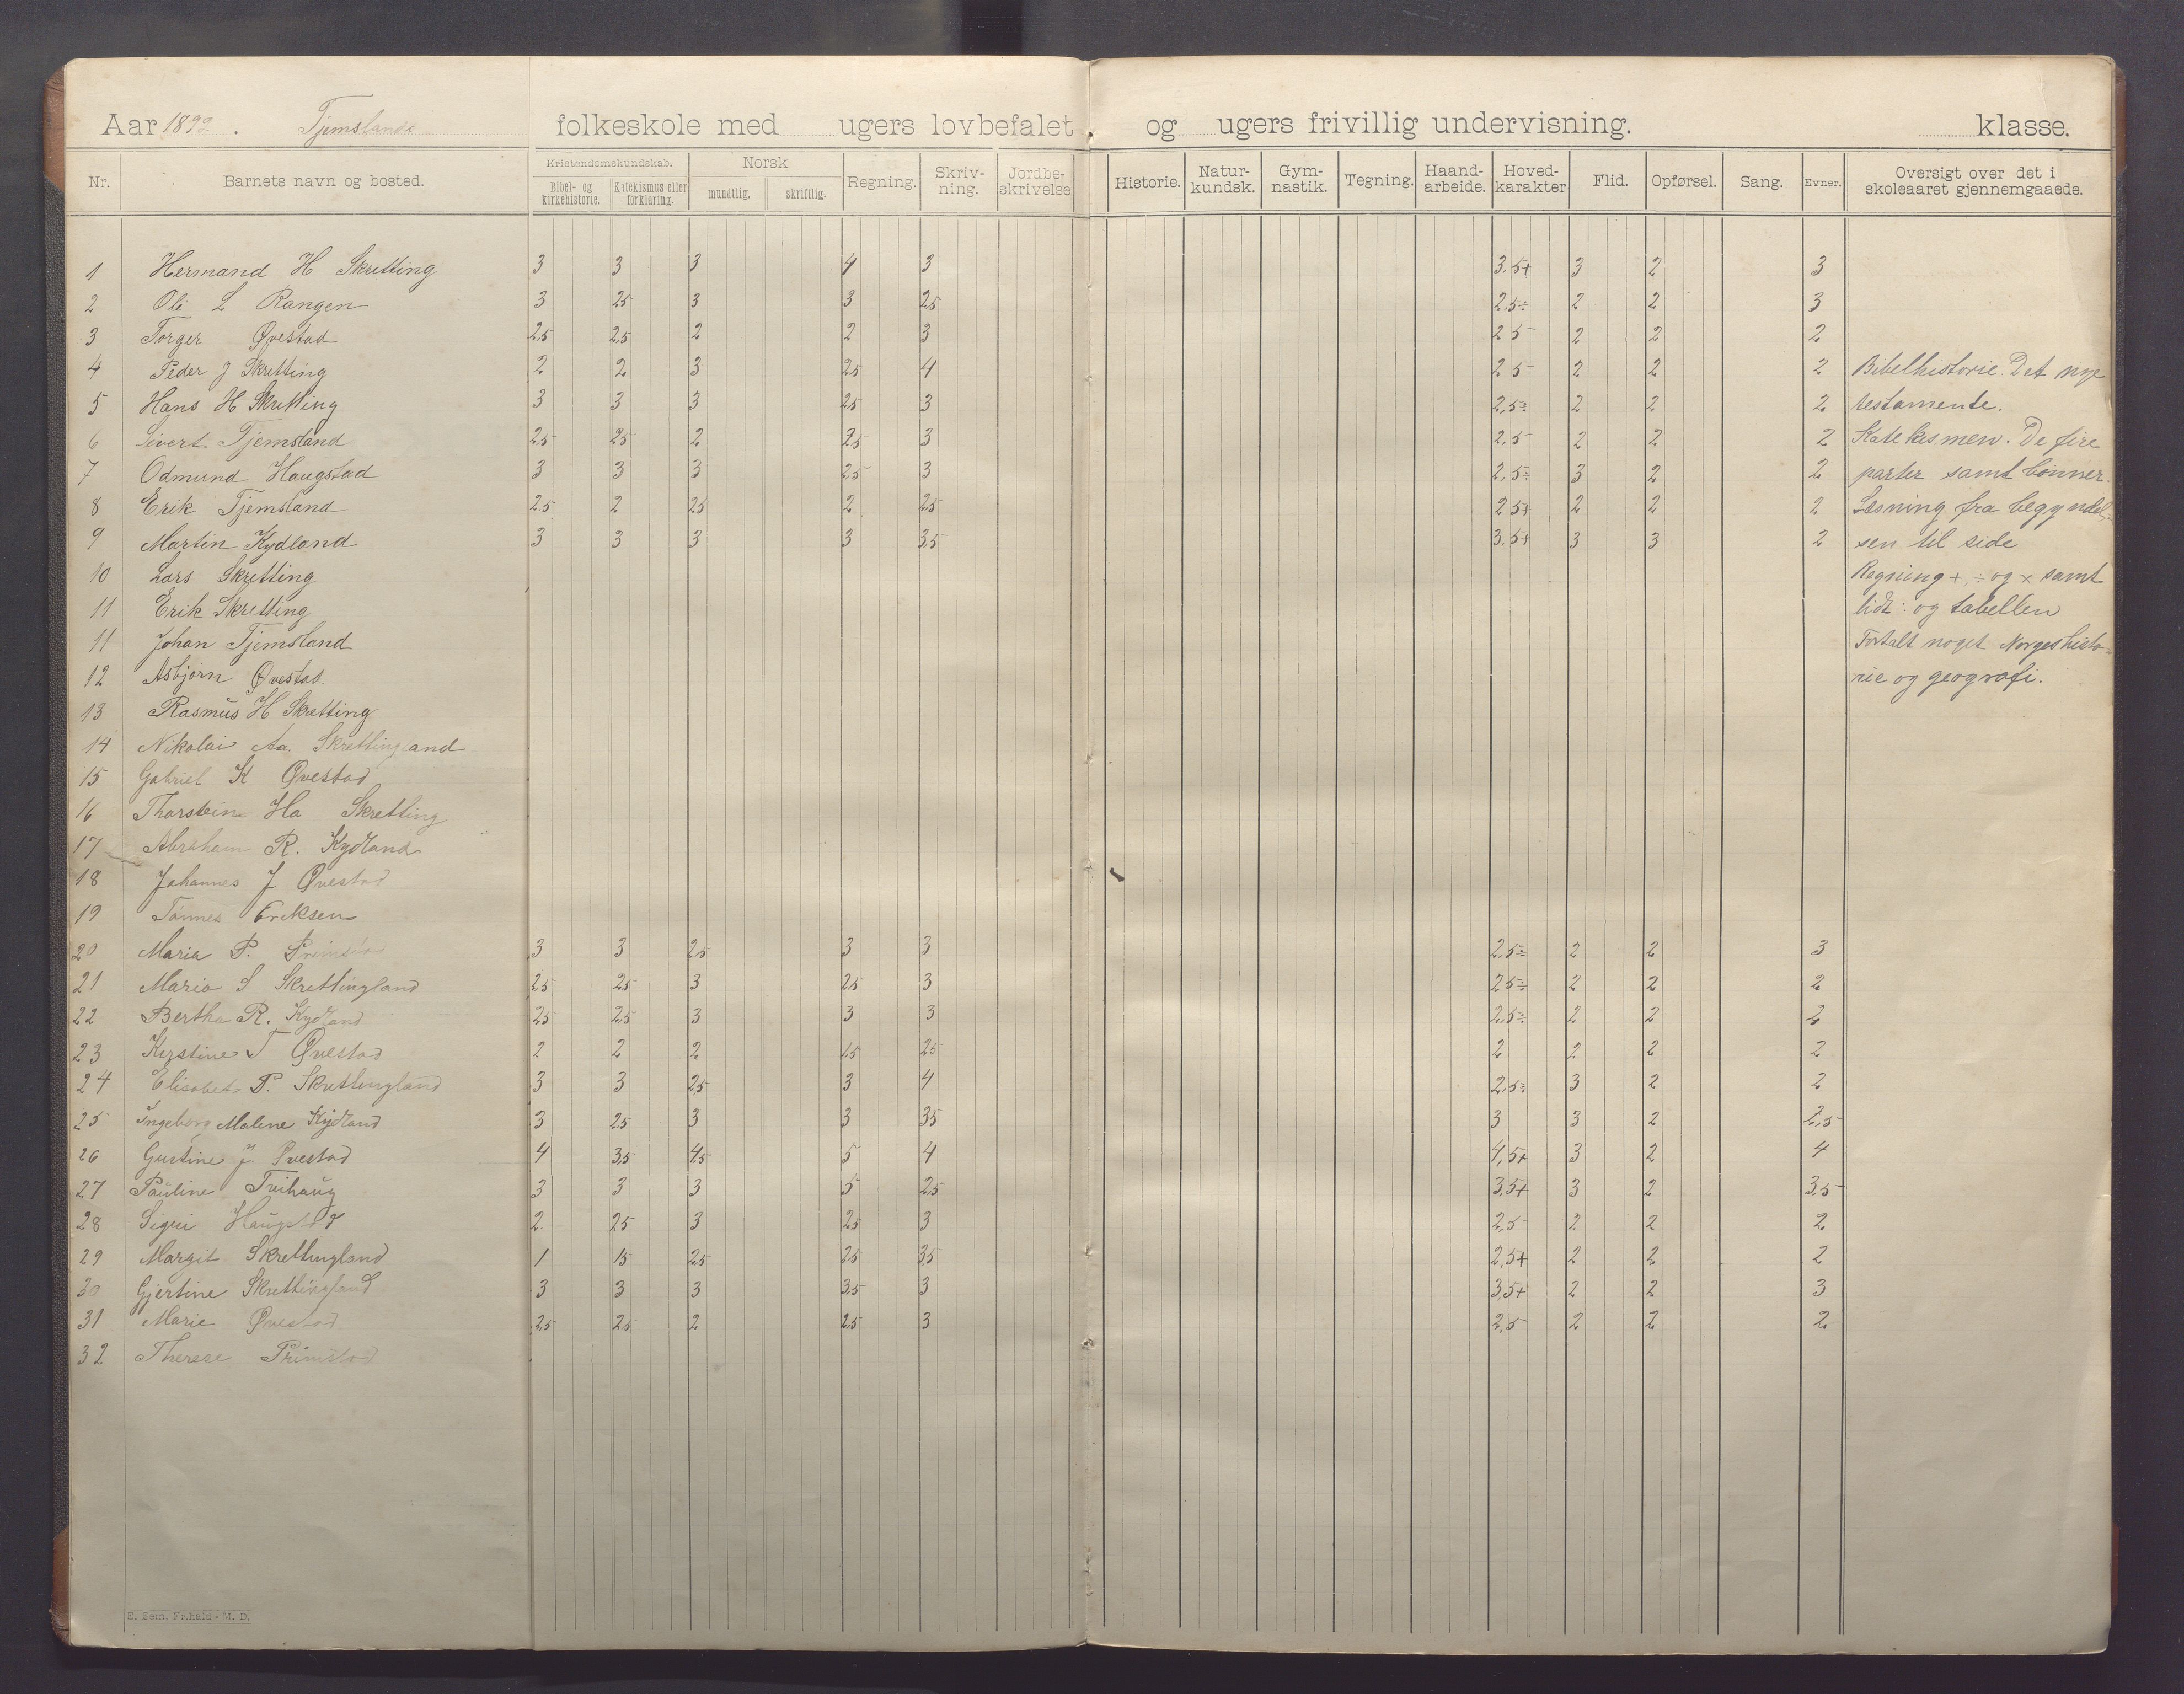 Aar 1892. Tjemslands folkeskole med ugers lovbefalet og ugers frivillig undervisning. klasse.
Nr. Barnets navn og bosted. Kristendomskundskab. Bibel- og kirkehistorie. Katekismus eller forklaring. Norsk mundtlig. skriftlig. Regning. Skriv-ning. Jordbe-skrivelse Historie. Natur-kundsk. Gym-nastik. Tegning. Haand-arbeide. Hoved-karakter Flid. Opførsel. Sang. Evner. Oversigt over det i skoleaaret gjennemgaaede.
1 Hermand H Skretting 3 3 3 4 3 3,5+ 3 2 3
2 Ole L Rangen 3 25 3 3 2,5 2,5÷ 2 2 3
3 Torger Øvestad 2,5 2,5 2 2 3 2 5 2 2 2
4 Peder J Skretting 2 2 3 25 4 2 5 2 2 2 Bibelhistorie. Det nye
5 Hans H Skretting 3 3 3 25 3 2,5÷ 2 2 2 testamente.
6 Sivert Tjemsland 2,5 25 2 25 3 2,5 2 2 2 Katekismen. De fire
7 Odmund Haugstad 3 3 3 2,5 3 2,5÷ 3 2 2 parter samt bønner.
8 Erik Tjemsland 2,5 2 25 2 25 25+ 2 2 2 Læsning fra begyndel-
9 Martin Kydland 3 3 3 3 3,5 3,5+ 3 3 2 sen til side
10 Lars Skretting Regning +, ÷ og × samt
11 Erik Skretting lidt : og tabellen
11 Johan Tjemsland Fortalt noget Norgeshisto-
12 Asbjørn Øvestad rie og geografi.
13 Rasmus H Skretting
14 Nikolai Aa. Skrettingland
15 Gabriel K Øvestad
16 Thorstein Ha Skretting
17 Abraham R. Kydland
18 Johannes J Øvestad
19 Tønnes Eriksen
20 Maria P. 3 3 2,5 3 3 2,5÷ 2 2 3
21 Maria S Skrettingland 2,5 25 3 2,5 3 25÷ 2 2 2
22 Bertha R. Kydland 25 2,5 3 3 3 2,5÷ 2 2 2
23 Kirstine T Øvestad 2 2 2 1,5 25 2 2 2 2
24 Elisabet P. Skrettingland 3 3 2,5 3 4 2,5÷ 3 2 2
25 Ingeborg Malene Kydland 3 25 3 3 35 3 3 2 2,5
26 Gustine J. Øvestad 4 3,5 4,5 5 4 4,5+ 3 2 4
27 Pauline Tvihaug 3 3 3 5 2,5 3,5+ 3 2 3,5
28 Sigri Haugstad 2 25 3 25 3 2,5 2 2 2
29 Margit Skrettingland 1 15 25 25 3,5 2,5+ 2 2 2
30 Gjertine Skrettingland 3 3 3 3,5 3 3,5+ 2 2 3
31 Marie Øvestad 2,5 2,5 2 2,5 3 2,5 2 2 2
32 Therese Primstad